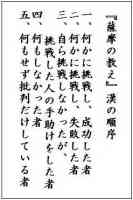 『薩摩の教え』漢の順序
一、何かに挑戦し、成功した者
二、何かに挑戦し、失敗した者
三、自ら挑戦しなかったが、
挑戦した人の手助けをした者
四、何もしなかった者
五、何もせず批判だけしている者